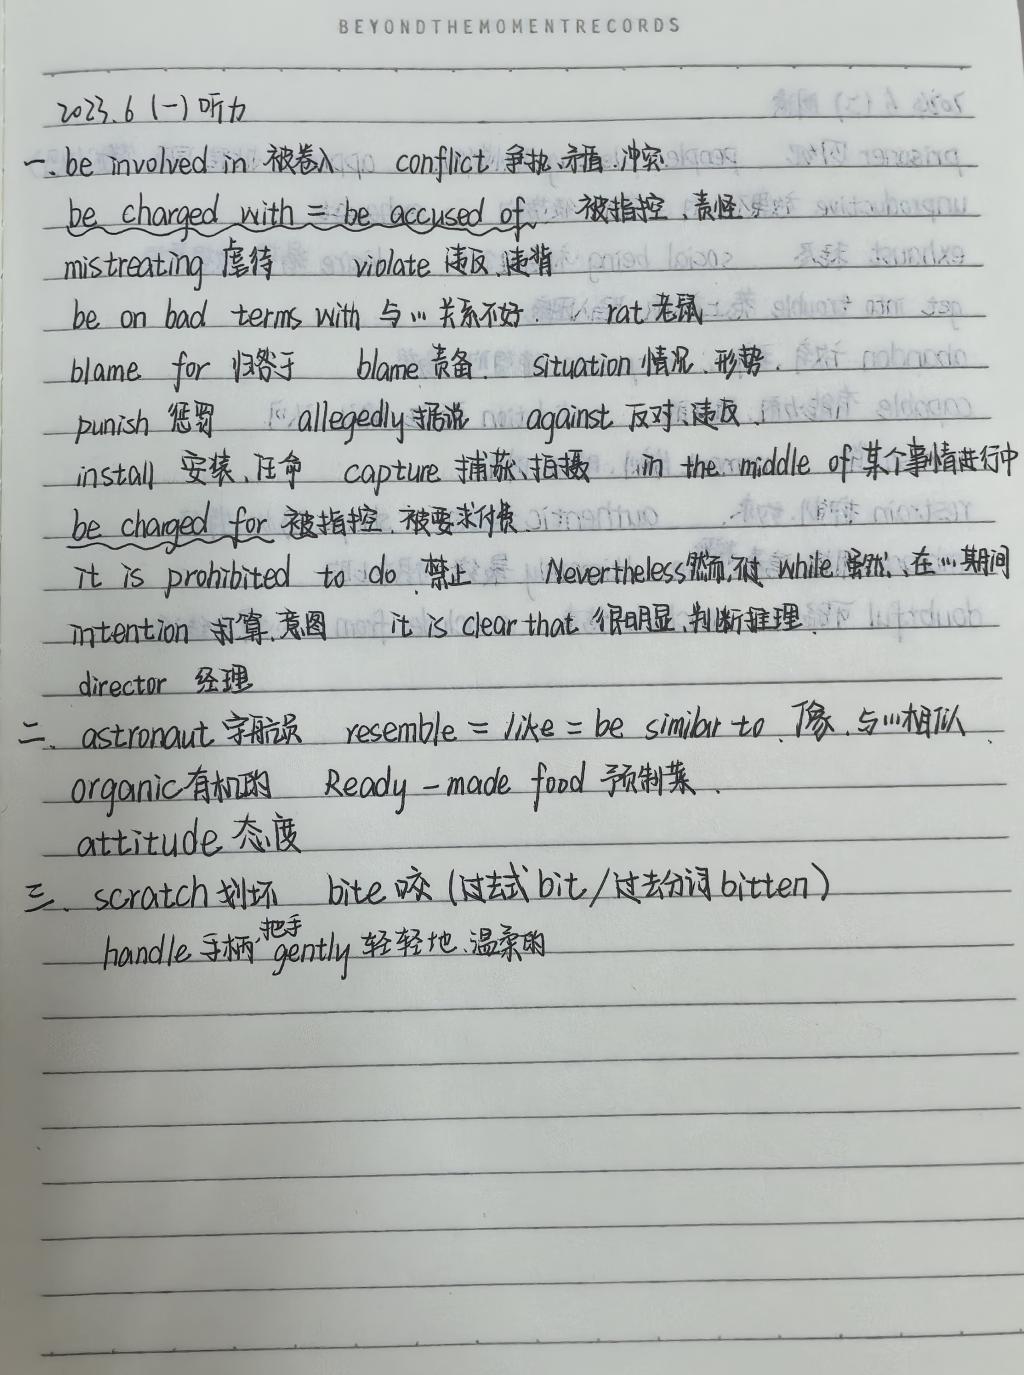 BEYONDTHEMOMENTRECORDS
2023.6 (一) 听力
一. be involved in 被卷入 conflict 争执、矛盾、冲突
be charged with = be accused of 被指控、责怪
mistreating 虐待 violate 违反、违背
be on bad terms with 与…关系不好. rat 老鼠
blame for 归咎于 blame 责备. situation 情况、形势.
punish 惩罚 allegedly 据说 against 反对、违反.
install 安装、任命 capture 捕获、拍摄 in the middle of 某个事情进行中
be charged for 被指控、被要求付费
it is prohibited to do 禁止 Nevertheless 然而、不过 while 虽然、在…期间
intention 打算、意图 it is clear that 很明显、判断推理.
director 经理
二. astronaut 宇航员 resemble = like = be similar to 像、与…相似.
organic 有机的 Ready-made food 预制菜.
attitude 态度
三. scratch 划坏 bite 咬 (过去式 bit / 过去分词 bitten)
handle 手柄、把手 gently 轻轻地、温柔的